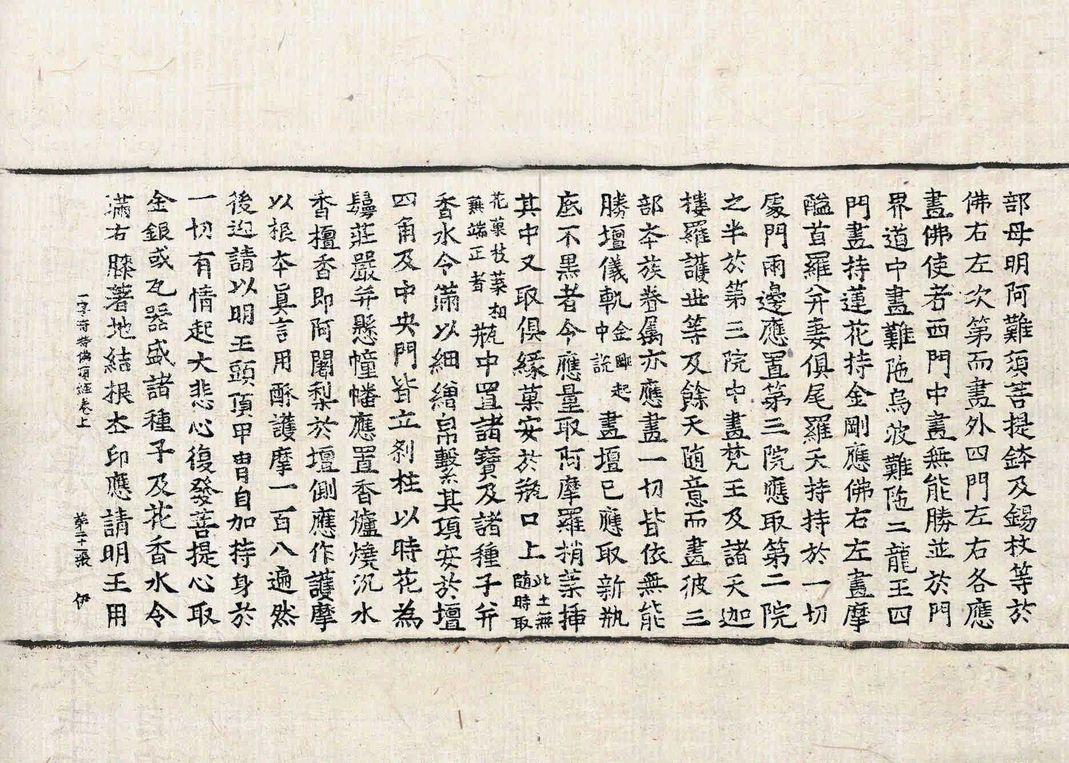 部母明阿難須菩提鉢及錫杖等於
佛右左次第而畫外四門左右各應
畫佛使者西門中畫無能勝並於門
界道中畫難陁烏波難陁二龍王四
門畫持蓮花持金剛應佛右左畫摩
醯首羅并妻俱尾羅天持持於一切
處門兩邊應置第三院應取第二院
之半於第三院中畫梵王及諸天迦
樓羅護世等及餘天随意而畫彼三
部夲族眷属亦應畫一切皆依無能
勝壇儀軌金剛起中說畫壇已應取新瓶
底不黒者令應量取阿摩羅梢葉挿
其中又取俱緣菓安於瓶口上此土無随時取
花菓枝葉相兼端正者瓶中置諸寶及諸種子并
香水令滿以細繒帛繫其項安於壇
四角及中央門皆立刹柱以時花為
鬘莊嚴并懸幢幡應置香爐燒沉水
香檀香即阿闍梨於壇側應作護摩
以根夲真言用酥護摩一百八遍然
後迎請以明王頭頂甲冑自加持身於
一切有情起大悲心復發菩提心取
金銀或瓦器盛諸種子及花香水令
滿右膝著地結根夲印應請明王用
一字奇特佛頂經卷上 第二十一張 伊